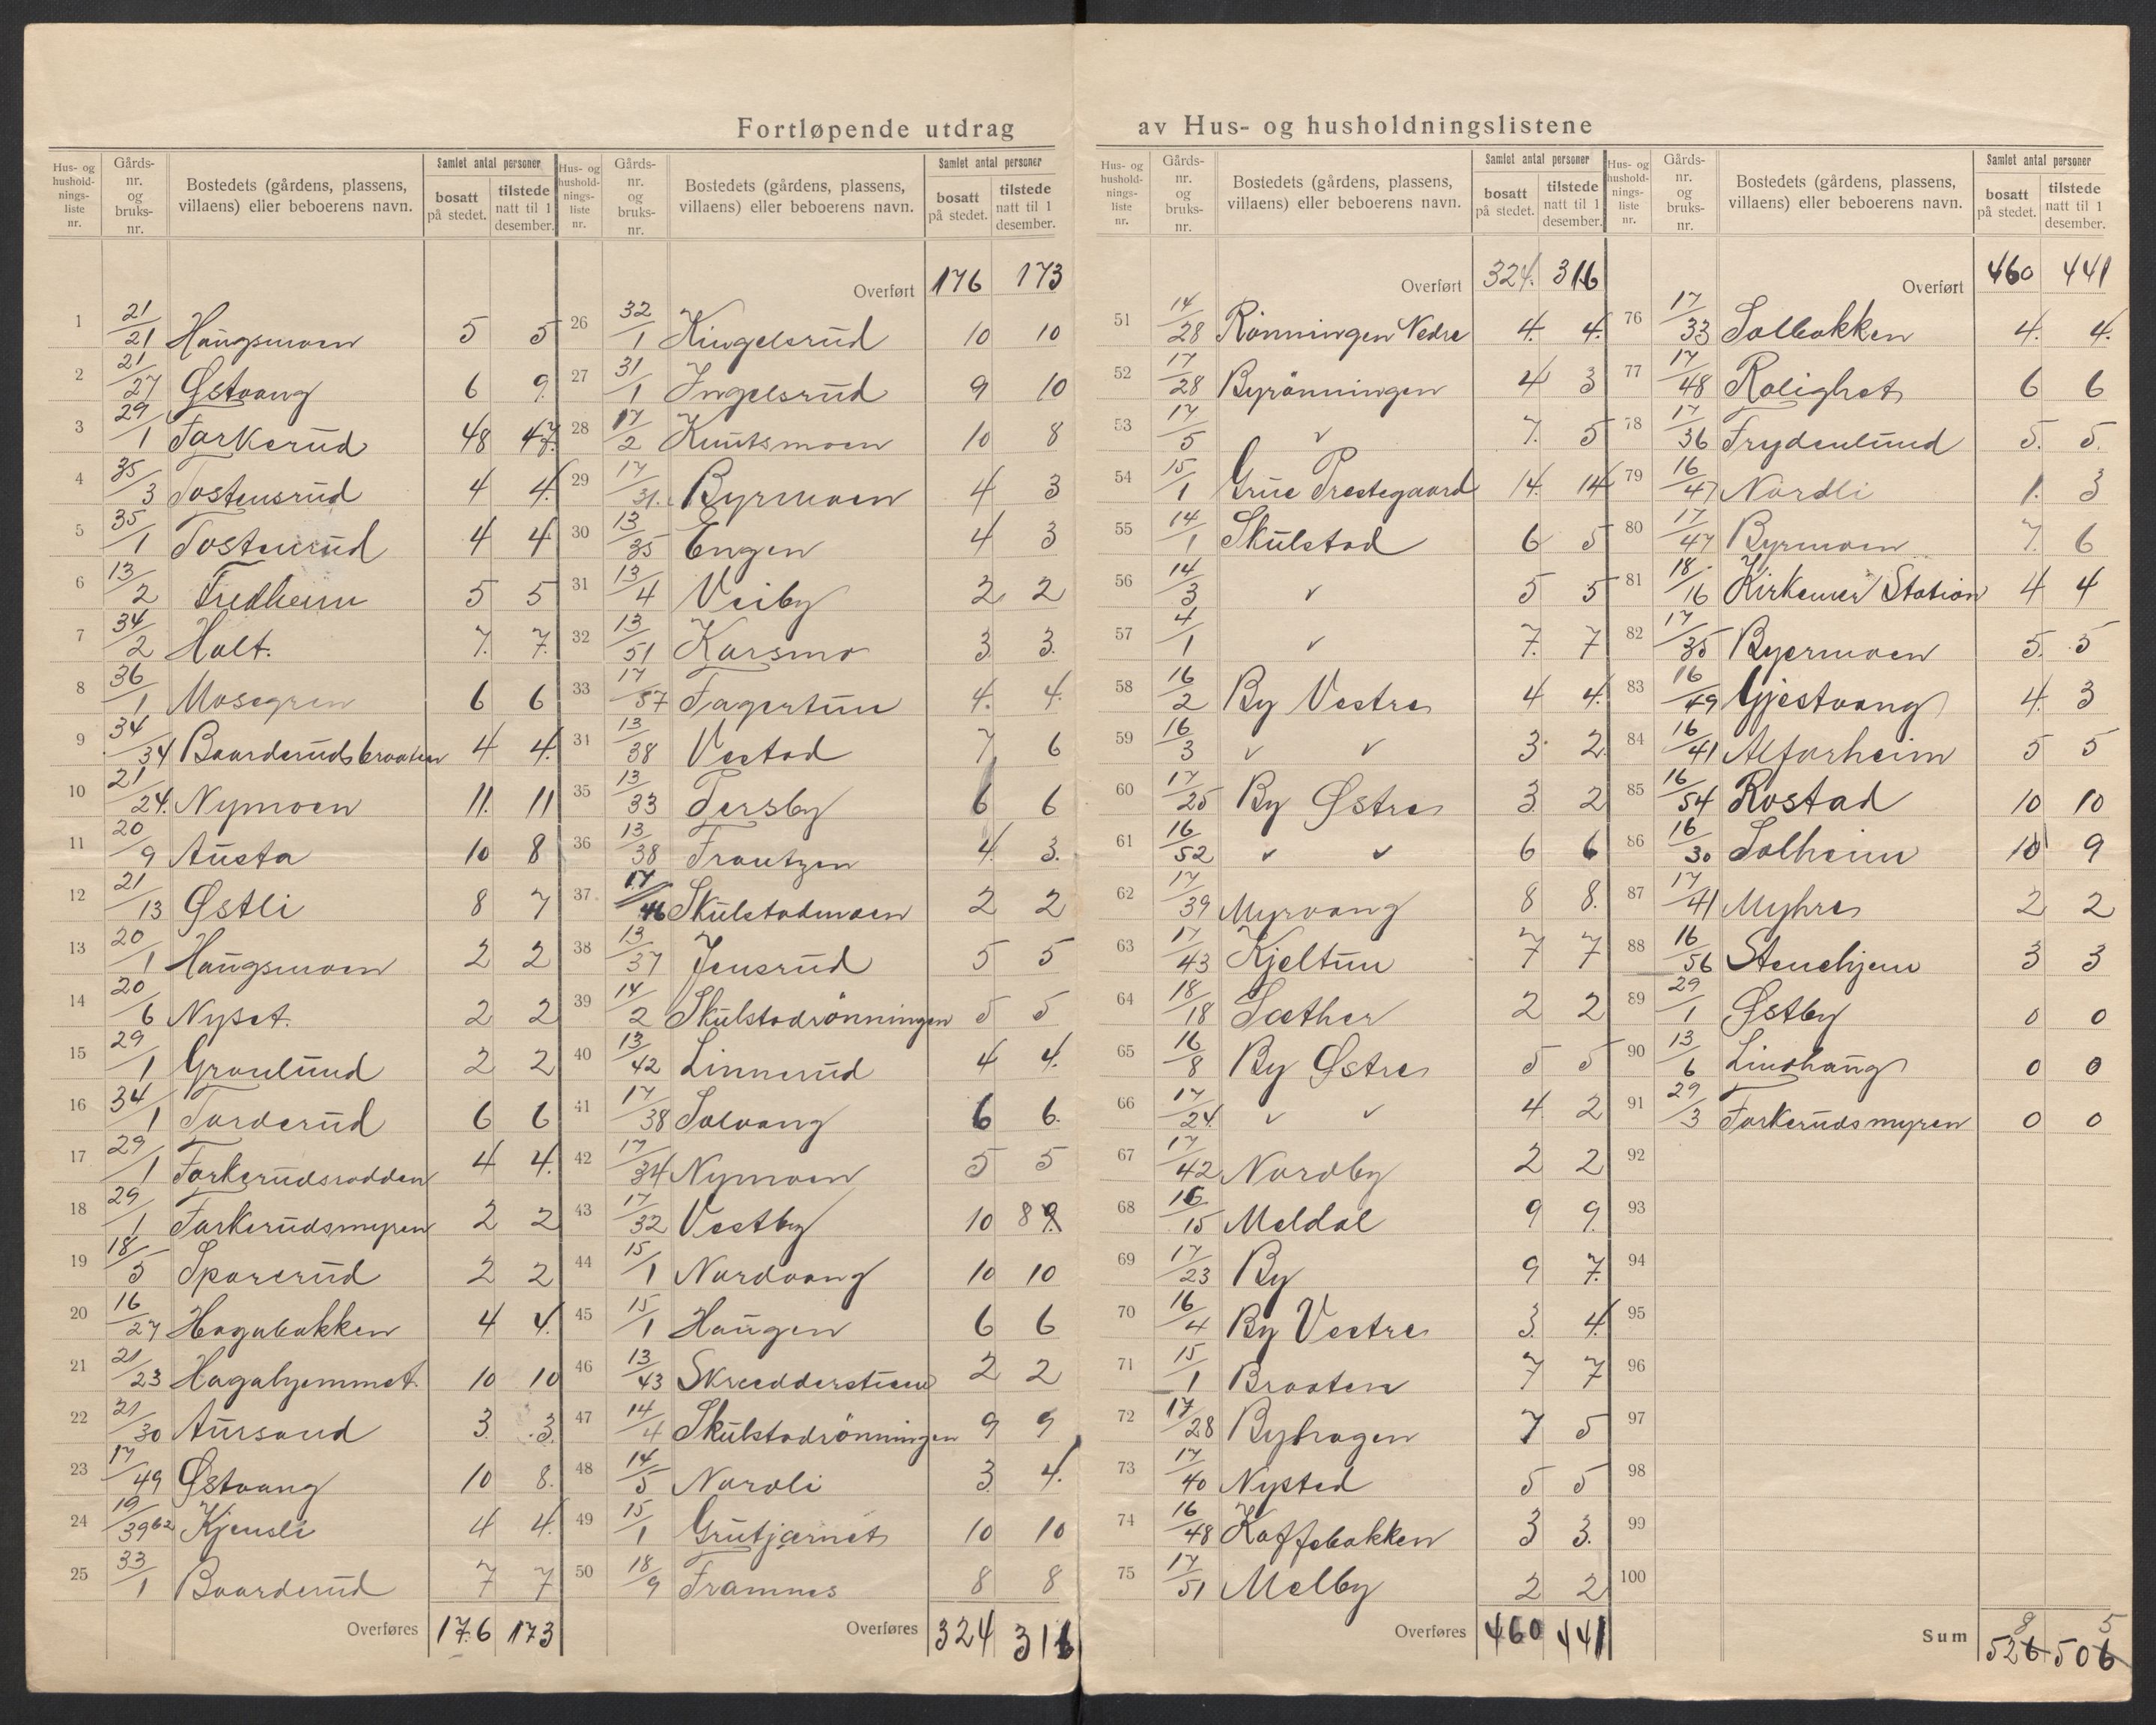 Fortløpende utdrag av Hus- og husholdningslistene
Hus- og hushold-nings-liste nr. Gårds-nr. og bruks-nr. Bostedets (gårdens, plassens, villaens) eller beboerens navn. Samlet antal personer bosatt på stedet. tilstede natt til 1 desember.
1 21/21 Haugsmoen 5 5
2 21/27 Østvang 6 9
3 29/1 Torkerud 48 47
4 35/3 Tostensrud 4 4
5 35/1 Tostensrud 4 4
6 13/2 Fredheim 5 5
7 34/2 Holt. 7 7
8 36/1 Mosegren 6 6
9 34/34 Baarderudsbraaten 4 4
10 21/24 Nymoen 11 11
11 20/9 Austa 10 8
12 21/13 Østli 8 7
13 20/1 Haugsmoen 2 2
14 20/6 Nyset. 2 2
15 29/1 Gronlund 2 2
16 34/1 Torderud 6 6
17 29/1 Torkerudsrodden 4 4
18 29/1 Torkerudsmyren 2 2
19 18/5 Sparerud 2 2
20 16/27 Hagabakken 4 4
21 21/23 Hagahjemmet 10 10
22 21/30 Aursand 3 3
23 17/49 Østvang 10 8
24 19/39 62 Kjensli 4 4
25 33/1 Baarderud 7 7
Overføres 176 173
Hus- og hushold-nings-liste nr. Gårds-nr. og bruks-nr. Bostedets (gårdens, plassens, villaens) eller beboerens navn. Samlet antal personer bosatt på stedet. tilstede natt til 1 desember.
Overført 176 173
26 32/1 Kingelsrud 10 10
27 31/1 Ingelsrud 9 10
28 17/2 Knutsmoen 10 8
29 17/31 Byrmoen 4 3
30 13/35 Engen 4 3
31 13/4 Veiby 2 2
32 13/51 Karsmo 3 3
33 17/57 Fagertun 4 4
34 13/38 Vestad 7 6
35 13/33 Tersby 6 6
36 13/38 Frantzen 4 3
37 17/46 Skulstadmoen 2 2
38 13/37 Jensrud 5 5
39 14/2 Skulstadrönningen 5 5
40 13/42 Linnerud 4 4
41 17/38 Solvang 6 6
42 17/34 Nymoen 5 5
43 17/32 Vestby 10 8 9
44 15/1 Nordvang 10 10
45 15/1 Haugen 6 6
46 13/43 Skredderstuen 2 2
47 14/4 Skulstadrönningen 9 9
48 14/5 Nordli 3 4
49 15/1 Grutjærnet 10 10
50 18/9 Framnes 8 8
Overføres 324 316
Hus- og hushold-nings-liste nr. Gårds-nr. og bruks-nr. Bostedets (gårdens, plassens, villaens) eller beboerens navn. Samlet antal personer bosatt på stedet. tilstede natt til 1 desember.
Overført 324 316
51 14/28 Rönningen Nedre 4 4
52 17/28 Byrönningen 4 3
53 17/5 v 7 5
54 15/1 Grue Prestegaard 14 14
55 14/1 Skulstad 6 5
56 14/3 v 5 5
57 4/1 v 7 7
58 16/2 By Vestre 4 4
59 16/3 v v 3 2
60 17/25 By Østre 3 2
61 16/52 v v 6 6
62 17/39 Myrvang 8 8
63 17/43 Kjeltun 7 7
64 18/18 Sæther 2 2
65 16/8 By Østre 5 5
66 17/24 v v 4 2
67 17/42 Nordby 2 2
68 16/15 Meldal 9 9
69 17/23 By 9 7
70 16/4 By Vestre 3 4
71 15/1 Braaten 7 7
72 17/28 Byhagen 7 5
73 17/40 Nysted 5 5
74 16/48 Kaffebakken 3 3
75 17/51 Melby 2 2
Overføres 460 441
Hus- og hushold-nings-liste nr. Gårds-nr. og bruks-nr. Bostedets (gårdens, plassens, villaens) eller beboerens navn. Samlet antal personer bosatt på stedet. tilstede natt til 1 desember.
Overført 460 441
76 17/33 Solbakken 4 4
77 17/48 Rolighet 6 6
78 17/36 Frydenlund 5 5
79 16/47 Nordli 1 3
80 17/47 Byrmoen 7 6
81 18/16 Kirkenær Station 4 4
82 17/35 Byermoen 5 5
83 16/49 Gjestvang 4 3
84 16/41 Alfarheim 5 5
85 16/54 Rostad 10 10
86 16/30 Solheim 10 9
87 17/41 Myhre 2 2
88 16/56 Stenehjem 3 3
89 29/1 Østby 0 0
90 13/6 Lindhaug 0 0
91 29/3 Torkerudsmyren 0 0
92
93
94
95
96
97
98
99
100
8 5
Sum 526 506